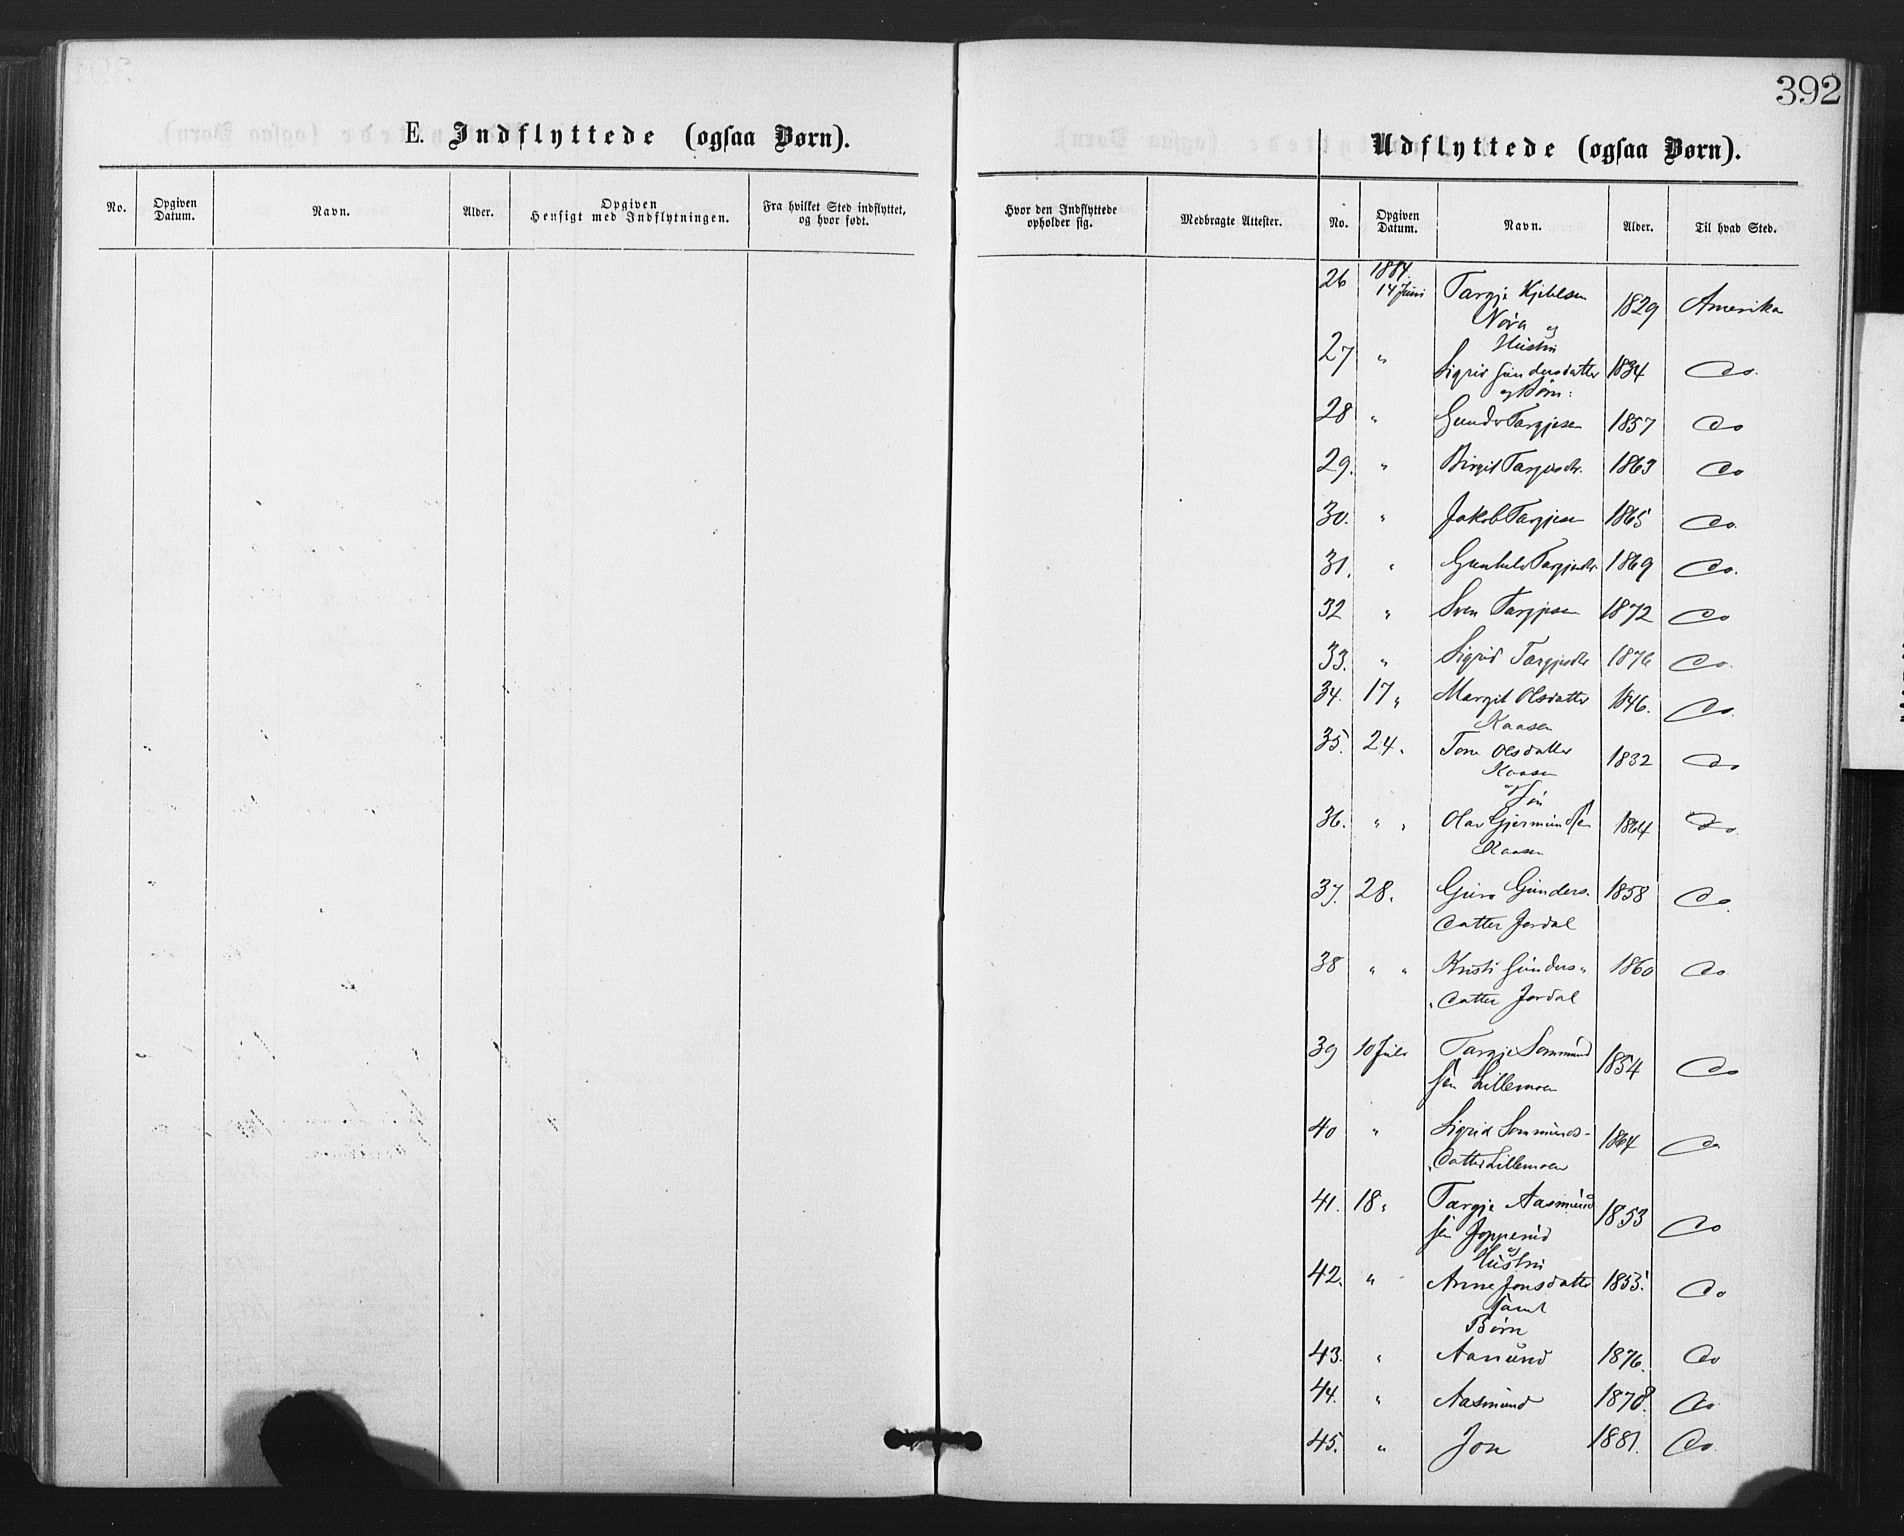 392
E. Indflyttede (ogsaa Børn).
Udflyttede (ogsaa Børn).
No. Opgiven Datum. Navn. Alder. Opgiven Hensigt med Indflytningen. Fra hvilket Sted indflyttet, og hvor født. Hvor den Indflyttede opholder sig. Medbragte Attester. No. Opgiven Datum. Navn. Alder. Til hvad Sted.
26 1884. 14 Juni Targje Kjetilsen 1829 Amerika
Nøra og
Hustru
27 " Sigrid Gundersdatter 1834 Do.
og Børn:
28 " Gunder Targjesen 1857 Do
29. " Birgit Targjesdtr. 1863 Do
30. " Jakob Targjesen 1865 Do.
31. " Gunhild Targjesdtr 1869 Do.
32 " Sven Targjesen 1872 Do
33. " Sigrid Targjesdtr 1876 Do.
34. 17 " Margit Olsdatter 1846. Do.
Kaasen
35. 24 " Tone Olsdatter 1832 Do
Kaasen
og Søn
36. " " Olav Gjermundsen 1864 Do.
Kaasen
37. 28 " Guro Gunders- 1858 Do.
datter Jordal
38 " " Kristi Gunders- 1860 Do.
datter Jordal
39 10 Juli Targje Sommund 1854 Do
sen Lillemoen
40 " Sigrid Sommunds- 1864 Do
datter Lillemoen
41. 18 " Targje Aasmund 1853 Do
sen Jopperud
og
Hustru
42. " Anne Jonsdatter 1853. Do
samt
Børn
43. " 1876. Do
44. " Aasmund 1878. Do
45. " Jon 1881. Do.